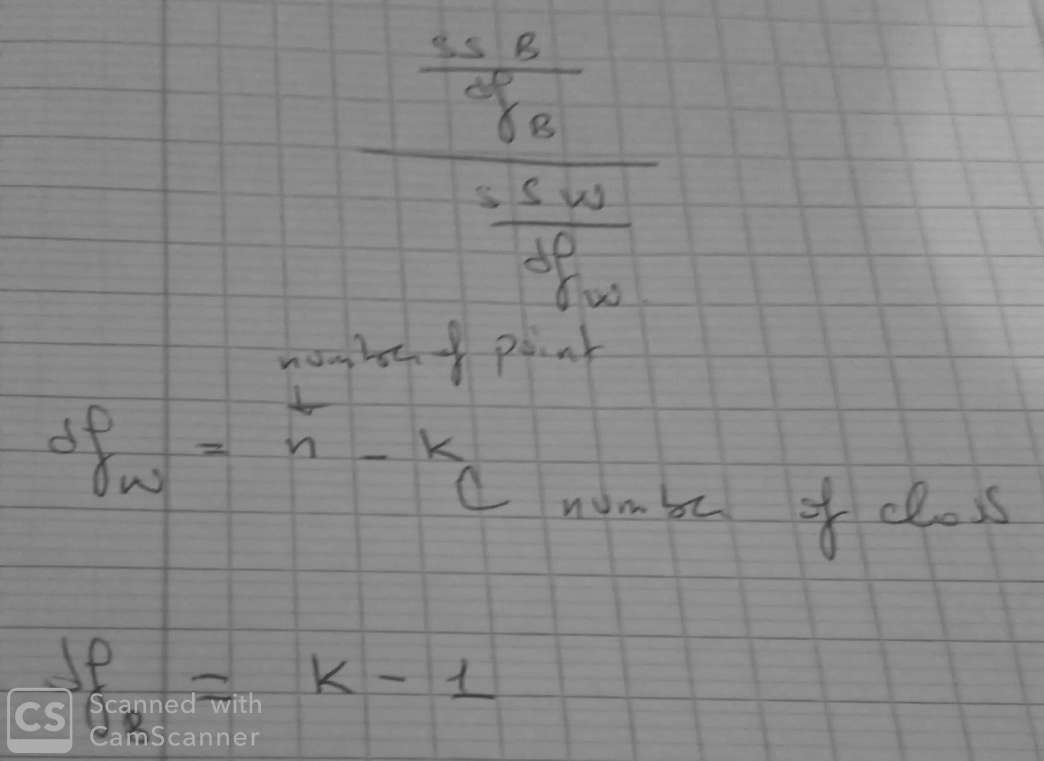 SSB
df B
SSW
df w
number of point
df w = n - K
number of class
df B = K - 1
CS Scanned with
CamScanner